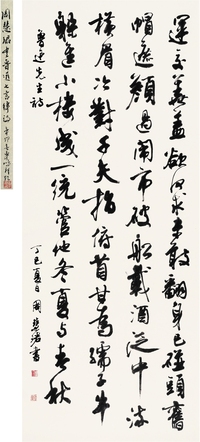 周慧珺書魯迅七言律詩
運交華蓋欲何求未敢翻身已碰頭舊
帽遮顏過鬧市破船載酒泛中流
橫眉冷對千夫指俯首甘為孺子牛
躲進小樓成一統管他冬夏與春秋
魯迅先生詩
丁巳夏日周慧珺書